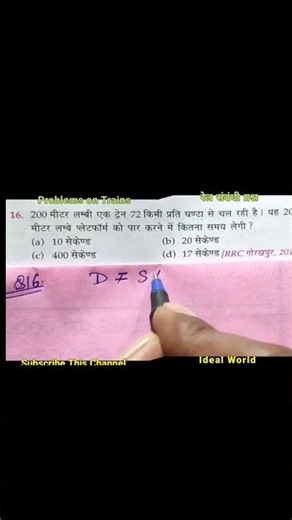 Problems on Trains रेल संबंधी प्रश्न
16. 200 मीटर लम्बी एक ट्रेन 72 किमी प्रति घण्टा से चल रही है। यह 20
मीटर लम्बे प्लेटफॉर्म को पार करने में कितना समय लेगी ?
(a) 10 सेकेण्ड (b) 20 सेकेण्ड
(c) 400 सेकेण्ड (d) 17 सेकेण्ड [RRC गोरखपुर, 201
Q16. D = S
Subscribe This Channel Ideal World